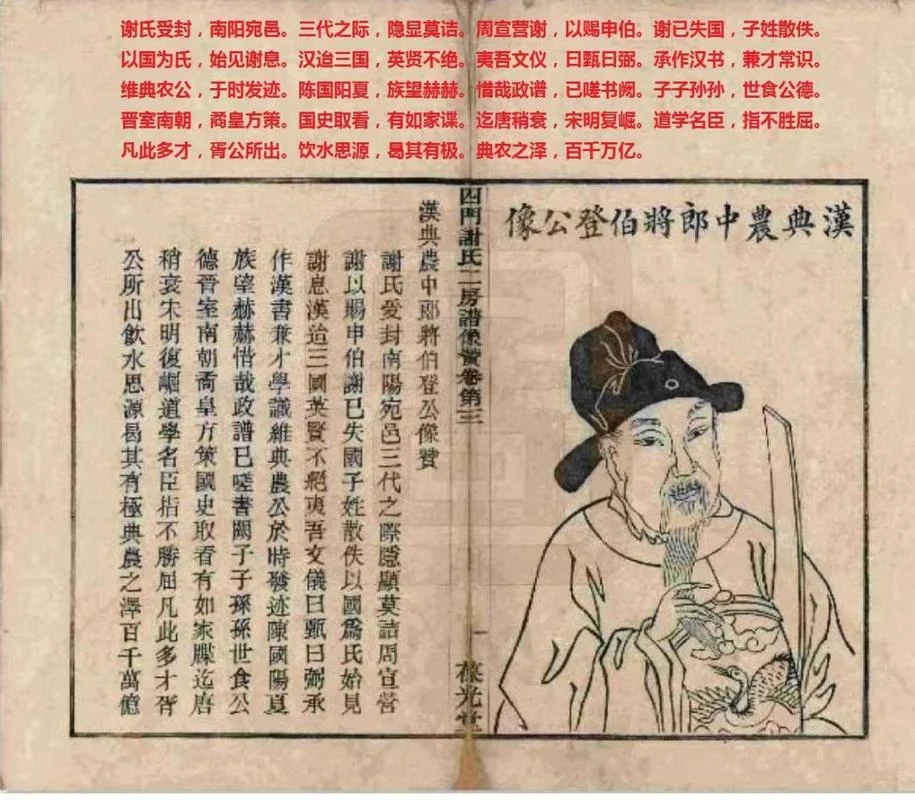 谢氏受封，南阳宛邑。三代之际，隐显莫诘。周宣营谢，以赐申伯。谢已失国，子姓散佚。
以国为氏，始见谢息。汉迨三国，英贤不绝。夷吾文仪，日甄日弼。承作汉书，兼才常识。
维典农公，于时发迹。陈国阳夏，族望赫赫。惜哉政谱，已嗟书阙。子子孙孙，世食公德。
晋室南朝，矞皇方策。国史取看，有如家谍。迄唐稍衰，宋明复崛。道学名臣，指不胜屈。
凡此多才，胥公所出。饮水思源，曷其有极。典农之泽，百千万亿。
漢典農中郎將伯登公像
四門謝氏二房譜像賛卷第三 一 葆光堂
漢典農中郎將伯登公像贊
謝氏受封南陽宛邑三代之際隱顯莫詰周宣營
謝以賜申伯謝已失國子姓散佚以國爲氏始見
謝息漢迨三國英賢不絕夷吾文儀曰甄曰弼承
作漢書兼才學識維典農公於時發迹陳國陽夏
族望赫赫惜哉政譜已嗟書闕子子孫孫世食公
德晉室南朝矞皇方策國史取看有如家牒迄唐
稍衰宋明復崛道學名臣指不勝屈凡此多才胥
公所出飲水思源曷其有極典農之澤百千萬億